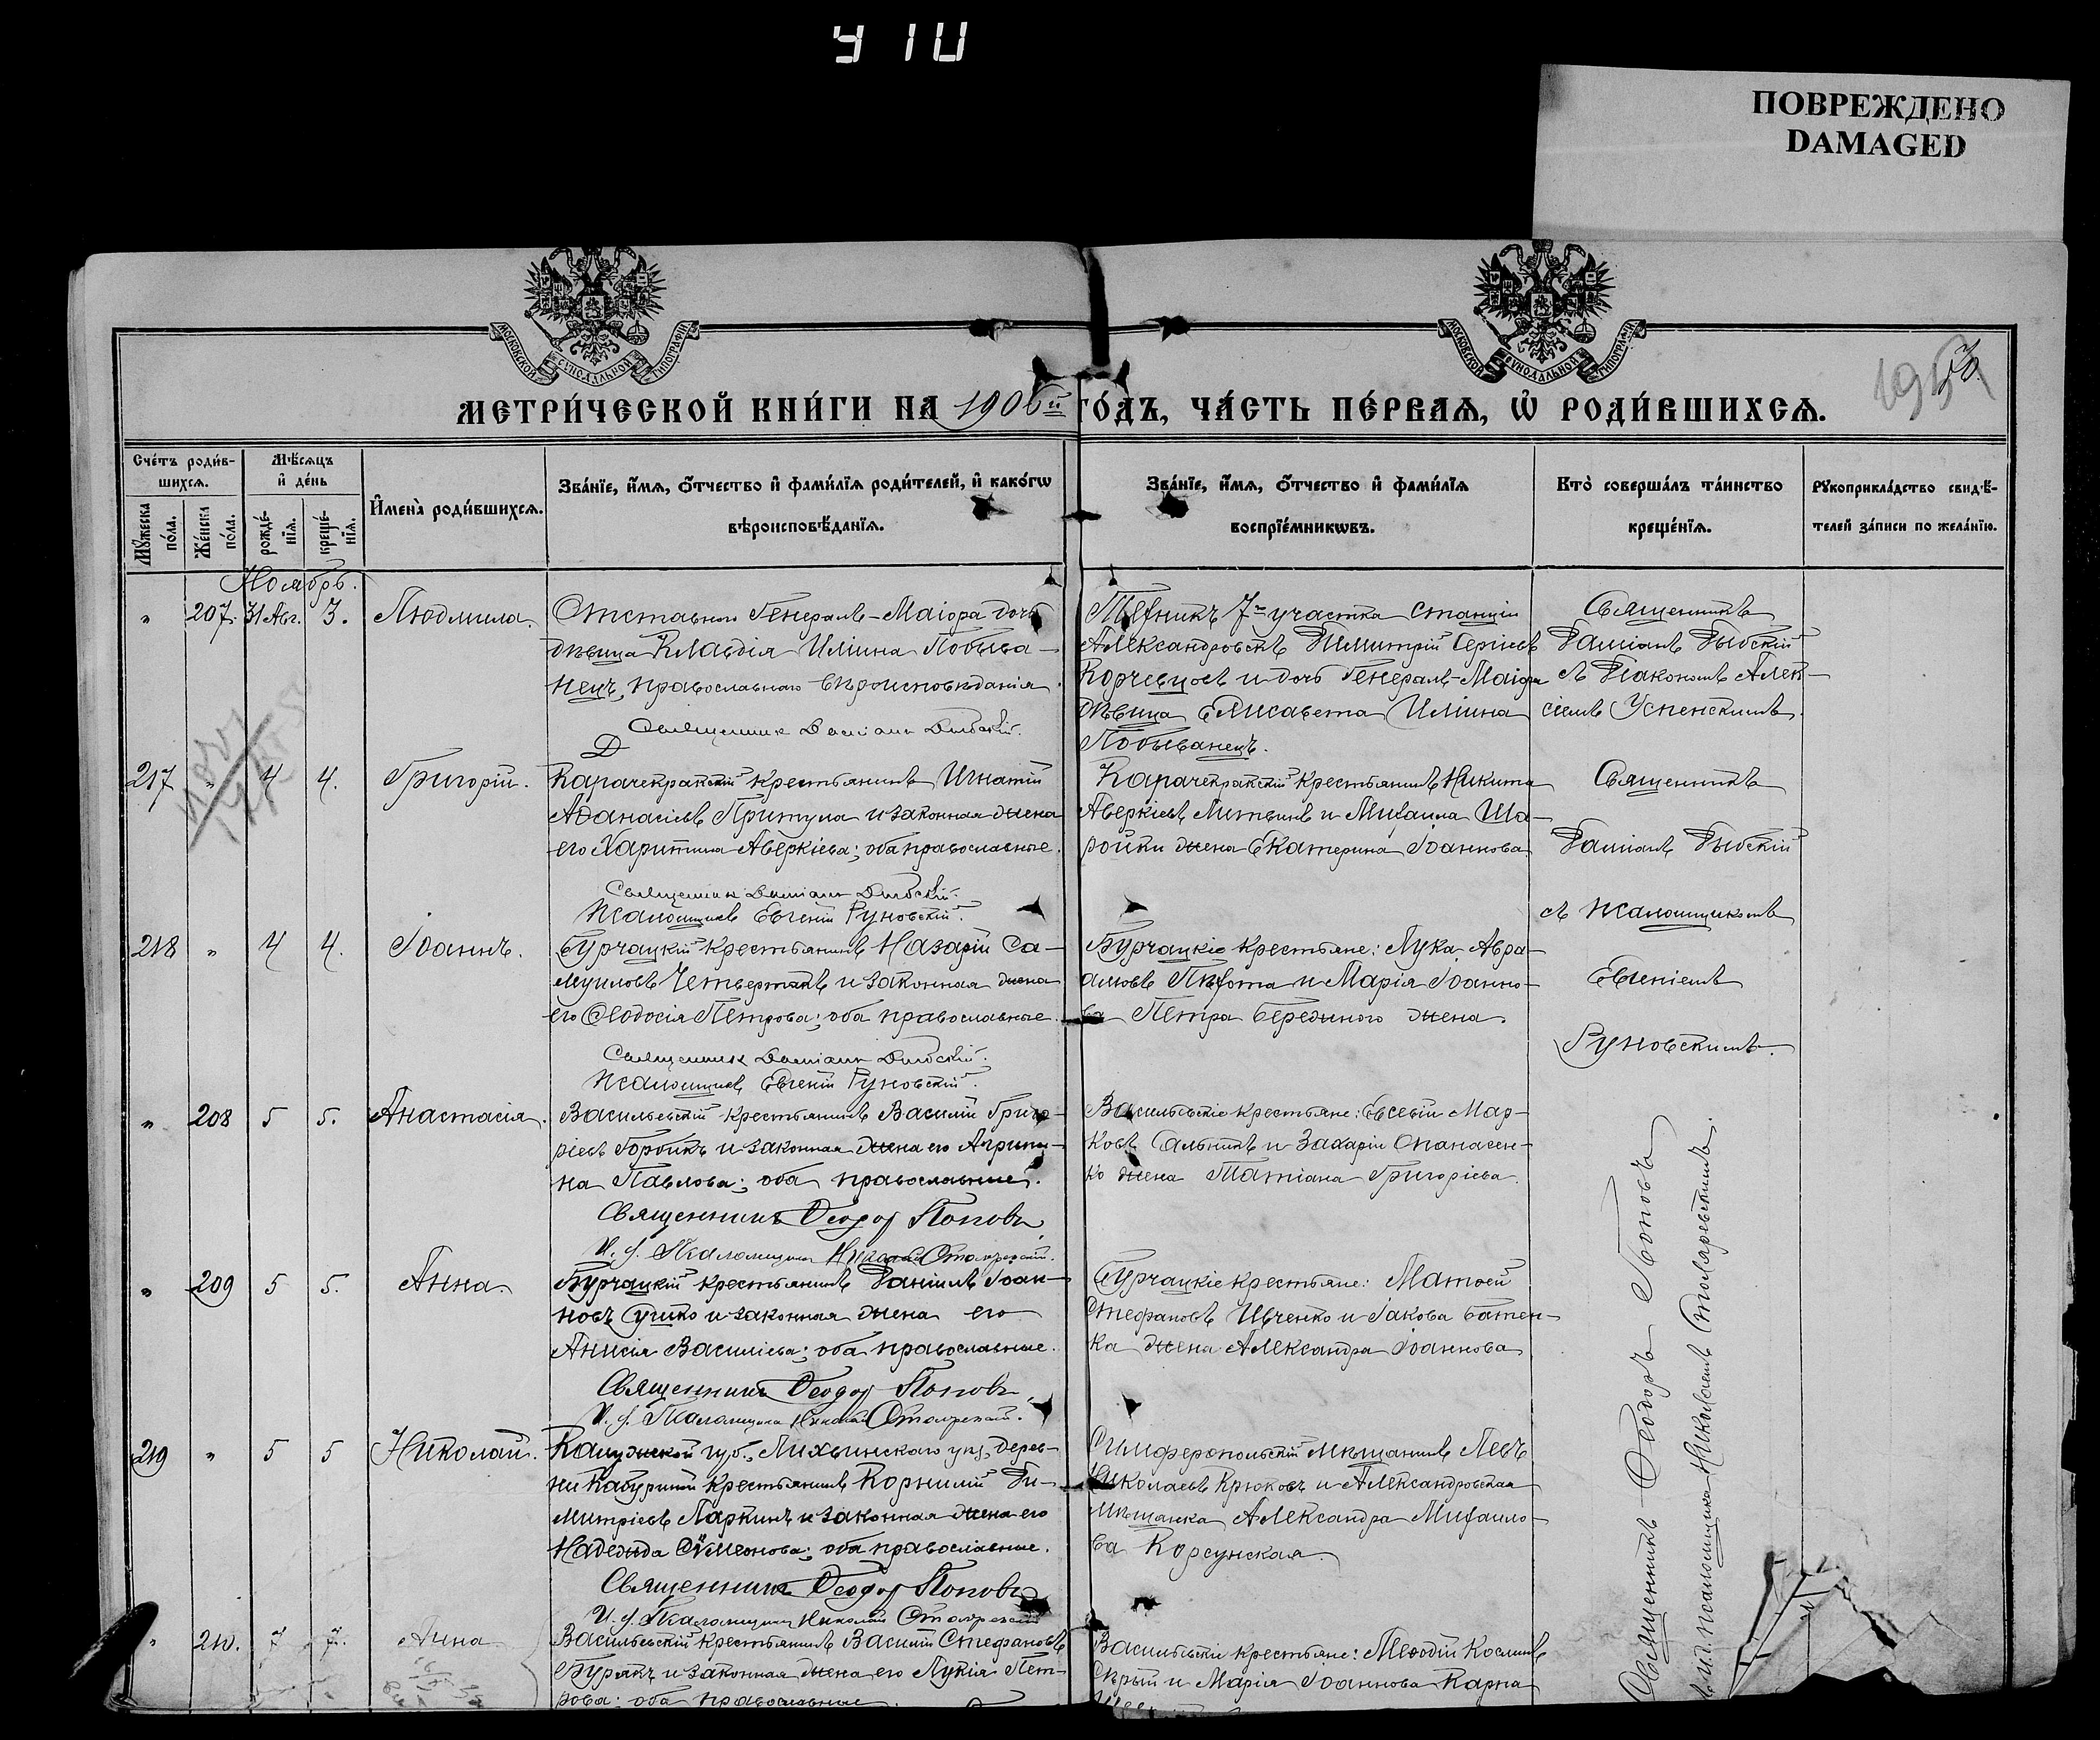 ПОВРЕЖДЕНО
DAMAGED
МОСКОВСКОЙ СѴНОДАЛЬНОЙ ТИПОГРАФІИ
МОСКОВСКОЙ СѴНОДАЛЬНОЙ ТИПОГРАФІИ
МЕТРИ́ЧЕСКОЙ КНИ́ГИ НА 1906й ГО́ДЪ, ЧА́СТЬ ПЕ́РВАѦ, Ѡ҆ РОДИ́ВШИХСѦ.
Сче́тъ роди́в-
шихсѧ.
Мѣ́сѧцъ
и҆ де́нь
Мꙋ́жеска по́ла.
Же́нска по́ла.
рожде́-
нїѧ.
креще́-
нїѧ.
И҆мена̀ роди́вшихсѧ.
Зва́нїе, и҆́мѧ, ѻ҆́тчество и҆ фами́лїѧ роди́телей, и҆ како́гѡ
вѣроисповѣ́данїѧ.
Зва́нїе, и҆́мѧ, ѻ҆́тчество и҆ фами́лїѧ
воспрїе́мникѡвъ.
Кто̀ соверша́лъ та́инство
креще́нїѧ.
Рꙋкоприкла́дство свидѣ́-
телей за́писи по жела́нїю.
Ноябрь.
" 207. 31 Авг. 3. Людмила.
Отставного Генералъ-Маіора дочь
дѣвица Клавдія Ильина Побыва-
нецъ, православнаго вѣроисповѣданія.
Священник Даміанъ Дыбскій.
Техникъ 7го участка станціи
Александровскъ Димитрій Сергіевъ
Корчевцовъ и дочь Генералъ-Маіора
дѣвица Елисавета Ильина
Побыванецъ.
Священникъ
Даміанъ Дыбскій
съ Діакономъ Алек-
сіемъ Успенскимъ.
217 " 4 4. Григорій.
Карачекракскій крестьянинъ Игнатій
Аѳанасіевъ Притула и законная жена
его Харитина Аверкіева; оба православные.
Священник Даміанъ Дыбскій.
Псаломщикъ Евгеній Руновскій.
Карачекракскій крестьянинъ Никита
Аверкіевъ Литвинъ и Михаила Ша-
ройки жена Екатерина Іоаннова.
Священникъ
Даміанъ Дыбскій
съ псаломщикомъ
Евгеніемъ
Руновскимъ.
218 " 4 4. Іоаннъ.
Бурчацкій крестьянинъ Назарій Са-
муиловъ Четвертакъ и законная жена
его Ѳеодосія Петрова; оба православные.
Священник Даміанъ Дыбскій.
Псаломщикъ Евгеній Руновскій.
Бурчацкіе крестьяне: Лука Авра-
амовъ Пѣхота и Марія Іоанно-
ва Петра Бережного жена.
" 208 5 5. Анастасія.
Васильевскій крестьянинъ Василій Григо-
ріевъ Горбикъ и законная жена его Агрипи-
на Павлова; оба православные.
Священникъ Ѳеодоръ Поповъ
И. д. Псаломщика Николай Столяревскій.
Васильевскіе крестьяне: Евсевій Мар-
ковъ Сальникъ и Захарія Опанасен-
ко жена Татіана Григоріева.
" 209 5 5. Анна.
Бурчацкій крестьянинъ Даніилъ Іоан-
новъ Сушко и законная жена его
Анисія Василіева; оба православные.
Священникъ Ѳеодоръ Поповъ
И. д. Псаломщика Николай Столяревскій.
Бурчацкіе крестьяне: Матѳей
Стефановъ Ивченко и Іакова Батен-
ка жена Александра Іоаннова
219 " 5 5 Николай.
Калужской губ., Лихвинскаго уѣз, дерев-
ни крестьянинъ Корнилій Ди-
митріевъ Ларкинъ и законная жена его
Надежда Сѵмеонова; оба православные.
Священникъ Ѳеодоръ Поповъ
И. д. Псаломщика Николай Столяревскій
Симферопольскій мѣщанинъ Левъ
Николаевъ Крюковъ и Александровская
мѣщанка Александра Михаило-
ва Корсунская.
" 210. 7 7. Анна
Васильевскій крестьянинъ Василій Стефановъ
Бурякъ и законная жена его Лукія Пет-
рова; оба православные.
Васильевскіе крестьяне: Меѳодій Косминъ
Скрый и Марія Іоаннова Карна
Священникъ Ѳеодоръ Поповъ
съ и.д. псаломщика Николаемъ Столяревскимъ.